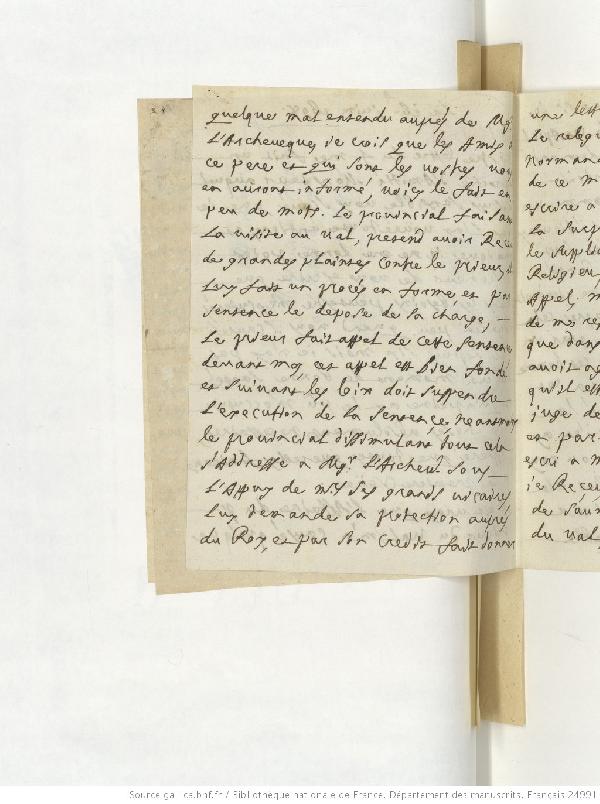 quelque mal entendu aupres de Mgr
L'Archeveque, je crois que les Amis
ce pere et qui sont les vostres vou
en auront informé, voicy le fait en
peu de mots. Le provincial faisan
La visite au val, pretend avoir Receu
de grandes plaintes contre le prieur, il
Luy fait un procés en forme, et par
sentence le depose de sa charge, —
Le prieur fait appel de cette sentence
devant moy, cet appel est bien fondé
et suivant les loix doit suspendre
L'execution de la sentence neantmoin
le provincial dissimulant tout cela
s'Addresse a Mgr. L'Archev. sous —
L'Appuy de mrs ses grands vicaires
Luy demande sa protection aupres
du Roy, et par son credit fait donner
une lett
Le relig
Normand
de ce m
escrire a
La Susp
le suppli
Religieu
Appel, m
de me re
que dans
avoit ag
qu'il est
juge de
et par
escri a M
je Receu
de sau
du val,
Source gallica.bnf.fr / Bibliothèque nationale de France. Département des manuscrits. Français 24991